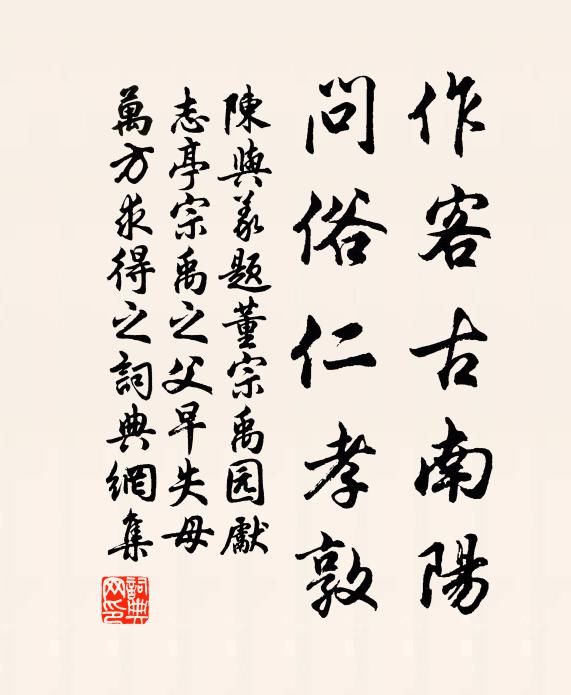 作客古南陽
問俗仁孝敦
陳與義題董宗禹园獻
志亭宗禹之父早失母
萬方求得之詞典網集
詞典
网印